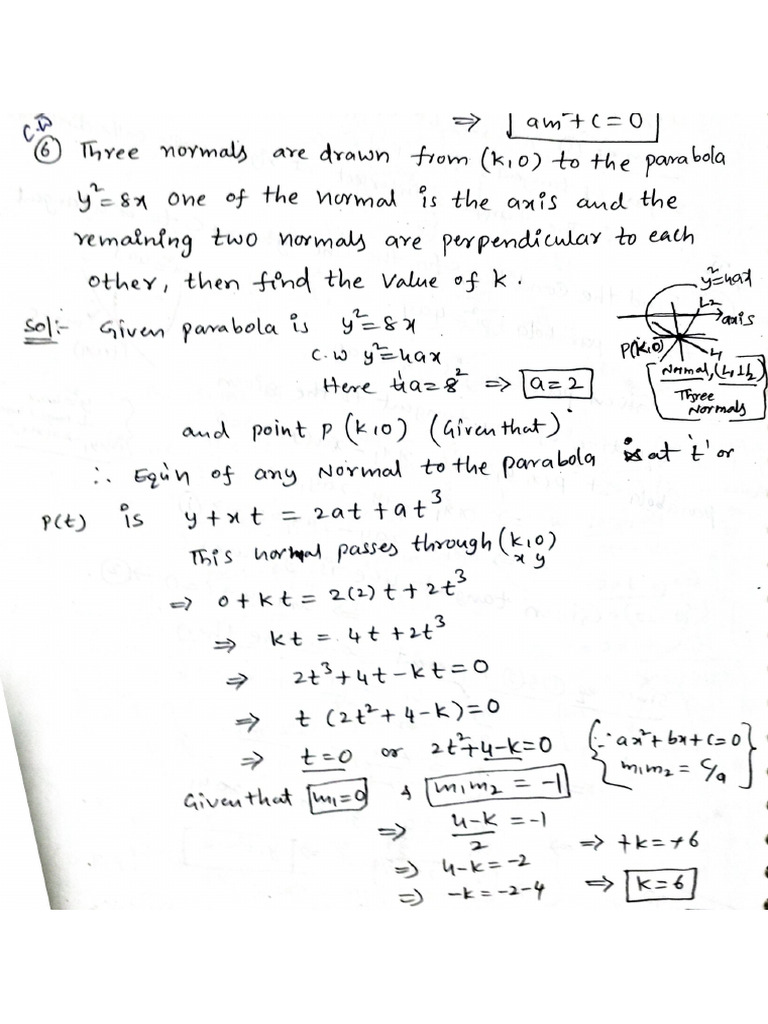 ⇒ am²+c=0
C.W
⑥ Three normals are drawn from (k,0) to the parabola
y²=8x one of the normal is the axis and the
remaining two normals are perpendicular to each
other, then find the value of k.
y²=4ax
L2
axis
P(k,0)
L1
Normal, (L1⊥L2)
Three
Normals
Sol:- Given parabola is y²=8x
C.W y²=4ax
Here 4a=8² ⇒ a=2
and point P (k,0) (Given that)
∴ Equ'n of any Normal to the parabola is at 't' or
P(t) is y+xt = 2at+at³
This normal passes through (k,0)
x y
⇒ 0+kt = 2(2)t+2t³
⇒ kt = 4t+2t³
⇒ 2t³+4t-kt=0
⇒ t(2t²+4-k)=0
⇒ t=0 or 2t²+4-k=0 {∵ ax²+bx+c=0
m1m2 = c/a}
Given that m1=0 & m1m2 = -1
⇒ 4-k/2 = -1
⇒ 4-k=-2
⇒ -k=-2-4
⇒ +k=+6
⇒ k=6